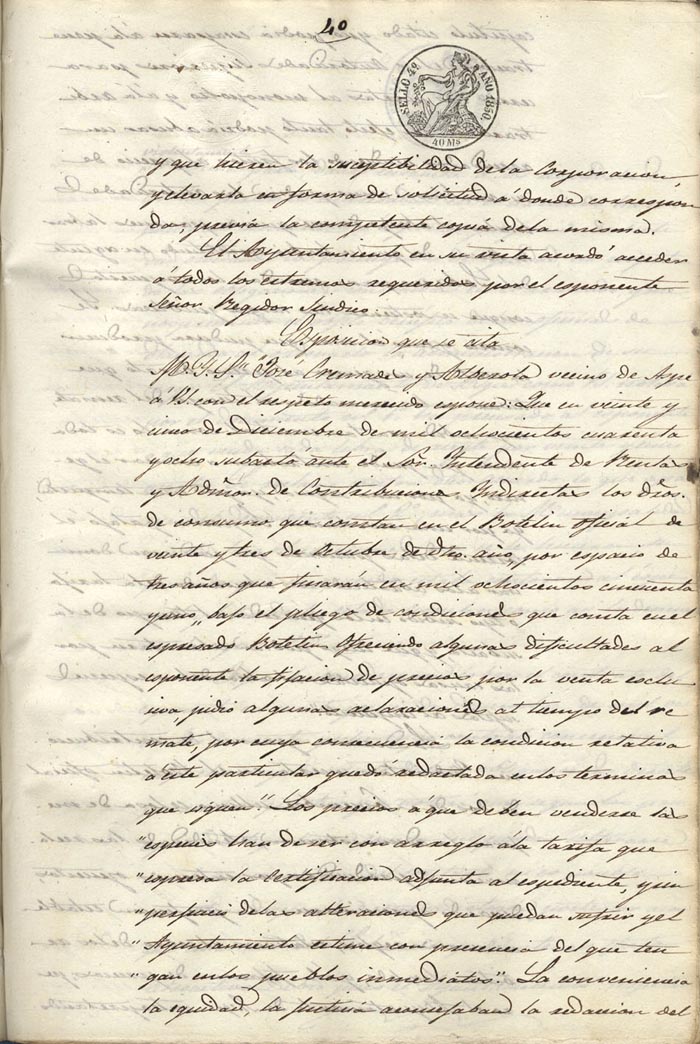 40
SELLO 4º AÑO 1850.
40 Ms
y que hieren la suceptibilidad de la Corporacion,
y elevarla en forma de solicitud á donde correspon
da, previa la competente copia de la misma.
El Ayuntamiento en su vista acordó acceder
á todos los estremos requeridos por el esponente
Señor Regidor Sindico.
Esposicion que se cita
M. Y. S. José Cremades y Alberola vecino de Aspe
á V.S. con el respeto merecido espone: Que en veinte y
cinco de Diciembre de mil ochocientos cuarenta
y ocho subastó ante el Sor. Intendente de Rentas
y Admor. de Contribuciones Indirectas los dros.
de consumo que constan en el Boletin oficial de
veinte y tres de Octubre de dho. año, por espacio de
tres años que finarán en mil ochocientos cincuenta
y uno, bajo el pliego de condiciones que consta en el
espresado Boletin. Ofreciendo algunas dificultades al
esponente la fijacion de precios por la venta esclu
siva, pidió algunas aclaraciones al tiempo del re
mate, por cuya consecuencia la condicion relativa
a este particular quedó redactada en los terminos
que siguen. "Los precios a que deben venderse las
"especies han de ser con arreglo á la tarifa que
"espresa la certificacion adjunta al espediente, y sin
"perjuicio de las alteraciones que puedan sufrir y el
"Ayuntamiento estime con presencia del que ten
"gan en los pueblos inmediatos". La conveniencia
la equidad, la justicia aconsejaban la redaccion del